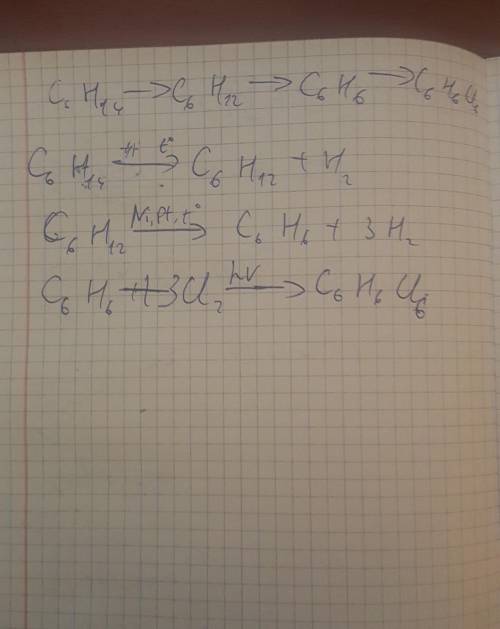 C₆ H₁₄ → C₆ H₁₂ → C₆ H₆ → C₆ H₆ Cl₆
C₆ H₁₄ → C₆ H₁₂ + H₂
C₆ H₁₂ Ni, Pt, t° → C₆ H₆ + 3 H₂
C₆ H₆ + 3Cl₂ hν → C₆ H₆ Cl₆